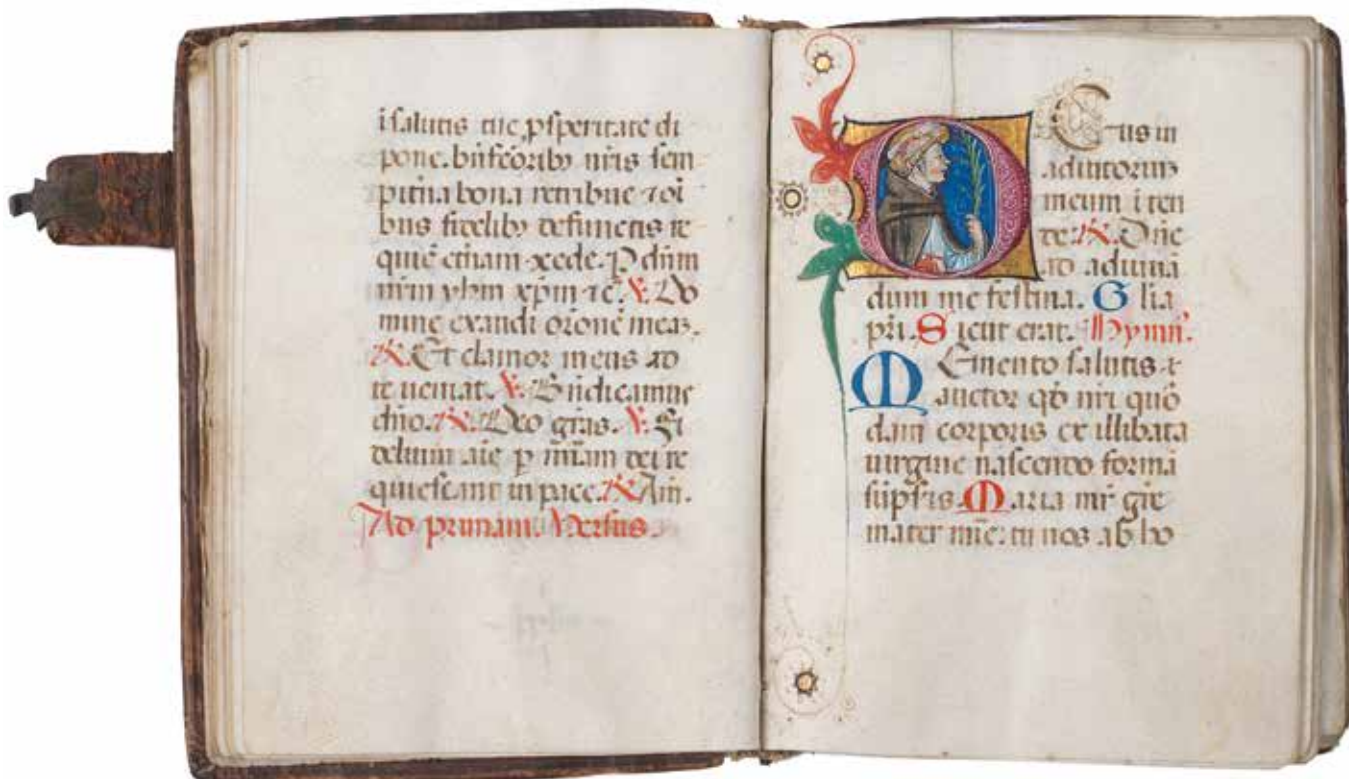 i salutis tue p̱speritate di
pone. bn̄fcōrib₉ nr̄is sem
pit̄na bona retribue ⁊ oi
bus fidelib₉ defunctis re
quiē et̄nam ꝯcede. P dn̄m
nr̄m yhm xp̄m ⁊c̄. V. Do
mine exaudi orōnē meaȝ.
R. Et clamor meus ad
te ueniat. V. Bn̄dicamus
dn̄o. R. Deo gr̄as. V. Fi
delium aīe p̱ m̄iam dei re
quiescant in pace. R. Am̄.
Ad primam. Versus.
Eus in
adiutoriuȝ
meum i ten
de. R. Dn̄e
ad adiuuā
dum me festina. Glīa
pr̄i. Sicut erat. Hymn᾿.
Memento salutis
auctor qḋ nr̄i quō
dam corporis ex illibata
uirgine nascendo formā
sūpsis. Maria mr̄ gr̄e
mater mīe: tu nos ab ho